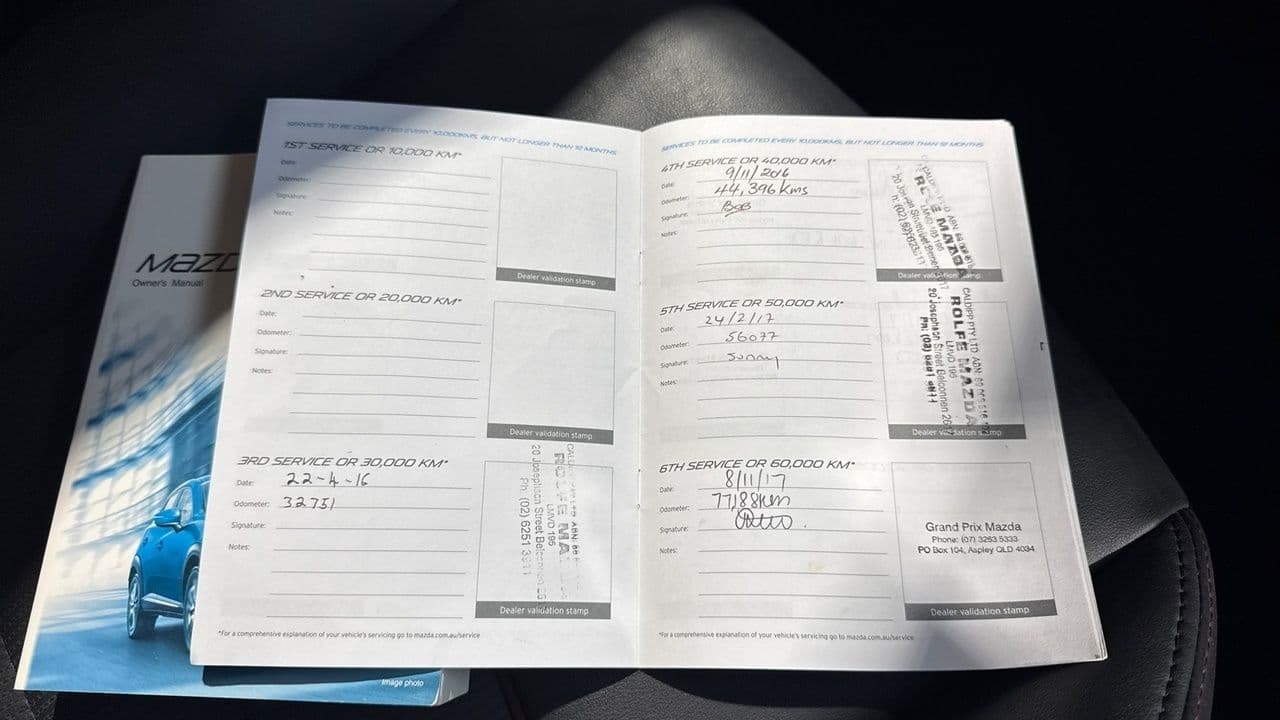 mazd
Owner's Manual
Image photo
SERVICES TO BE COMPLETED EVERY 10,000KMS, BUT NOT LONGER THAN 12 MONTHS
1ST SERVICE OR 10,000 KM*
Date:
Odometer:
Signature:
Notes:
Dealer validation stamp
2ND SERVICE OR 20,000 KM*
Date:
Odometer:
Signature:
Notes:
Dealer validation stamp
3RD SERVICE OR 30,000 KM*
Date: 22-4-16
Odometer: 32751
Signature:
Notes:
ROLFE MA
LMVD 195
20 Josephson Street Belconnen
Ph: (02) 6251
Dealer validation stamp
*For a comprehensive explanation of your vehicle's servicing go to mazda.com.au/service
SERVICES TO BE COMPLETED EVERY 10,000KMS, BUT NOT LONGER THAN 12 MONTHS
4TH SERVICE OR 40,000 KM*
Date: 9/11/2016
Odometer: 44,396 kms
Signature: Bob
Notes:
MAZDA
LMVD 195
Dealer validation stamp
5TH SERVICE OR 50,000 KM*
Date: 24/2/17
Odometer: 56077
Signature: Sunny
Notes:
CALDIPP PTY LTD ABN
ROLFE MAZDA
LMVD 195
20 Josephson Street Belconnen 26
Dealer validation stamp
6TH SERVICE OR 60,000 KM*
Date: 8/11/17
Odometer: 77,188km
Signature:
Notes:
Grand Prix Mazda
Phone: (07) 3263 5333
PO Box 104, Aspley QLD 4034
Dealer validation stamp
*For a comprehensive explanation of your vehicle's servicing go to mazda.com.au/service